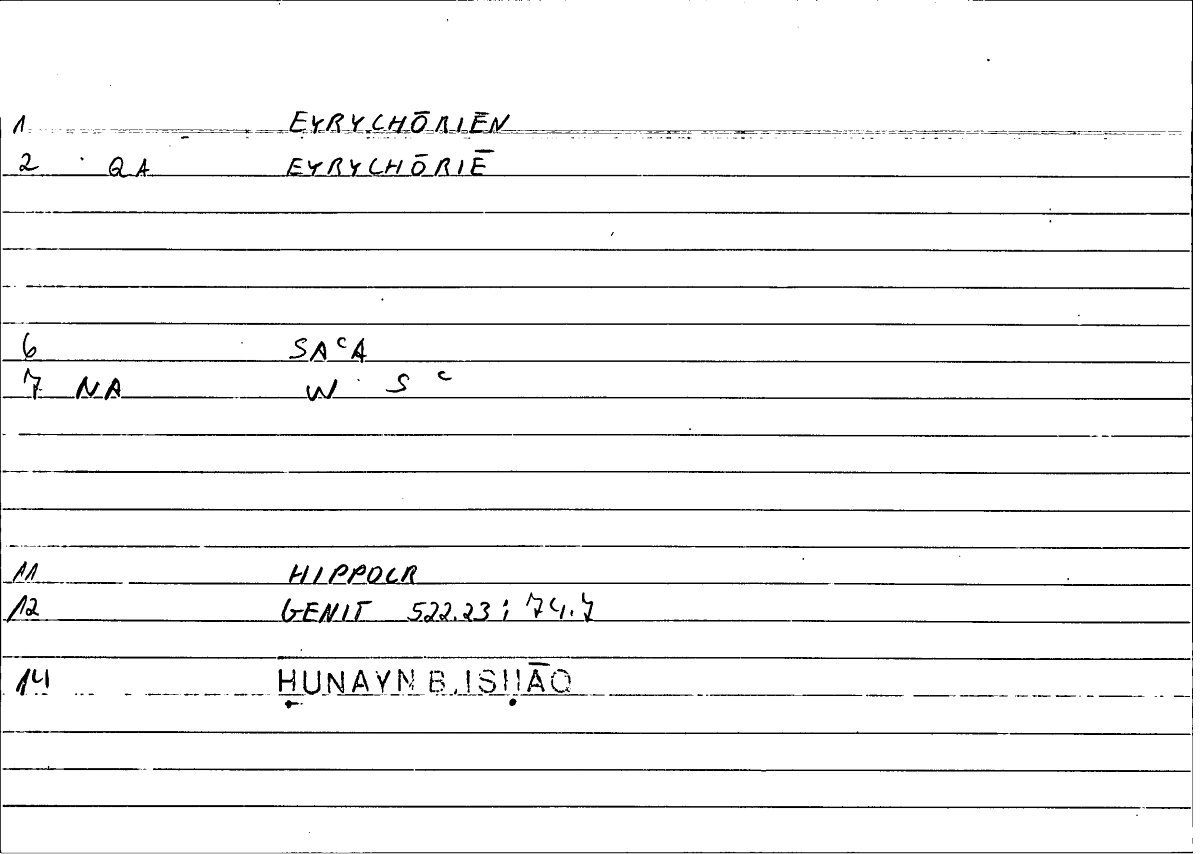 1 EYRYCHŌRIĒN
2 QA EYRYCHŌRIĒ
6 SAᶜA
7 NA W S ᶜ
11 HIPPOCR
12 GENIT 522.23; 74.7
14 ḤUNAYN B.ISḤĀQ